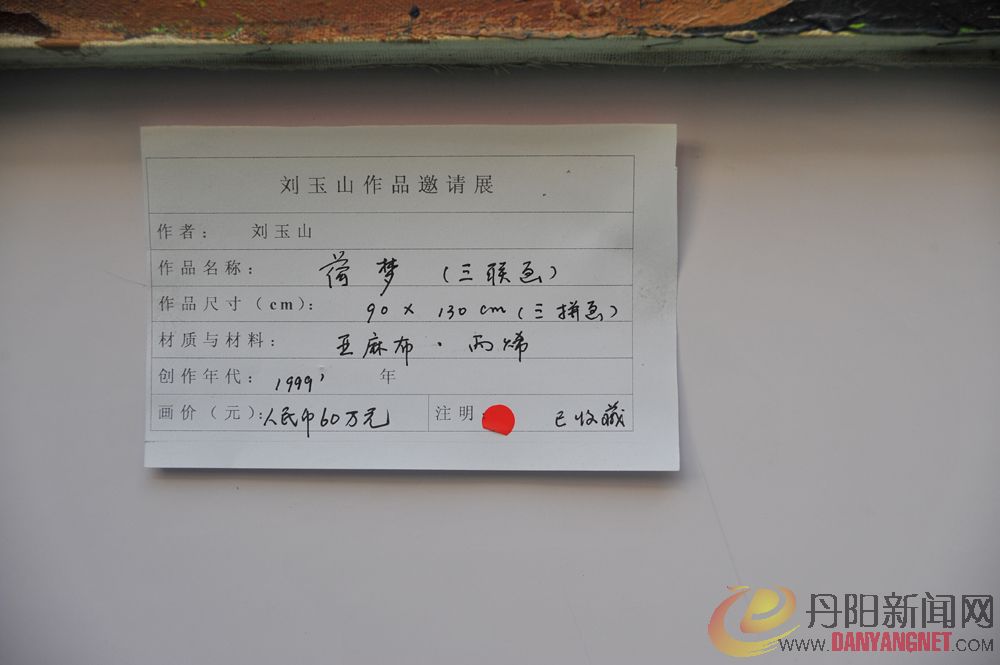 刘玉山作品邀请展
作者： 刘玉山
作品名称： 荷梦（三联画）
作品尺寸（cm）： 90 x 130 cm（三拼画）
材质与材料： 亚麻布·丙烯
创作年代： 1999' 年
画价（元）：人民币60万元 注明： 已收藏
丹阳新闻网
WWW.DANYANGNET.COM